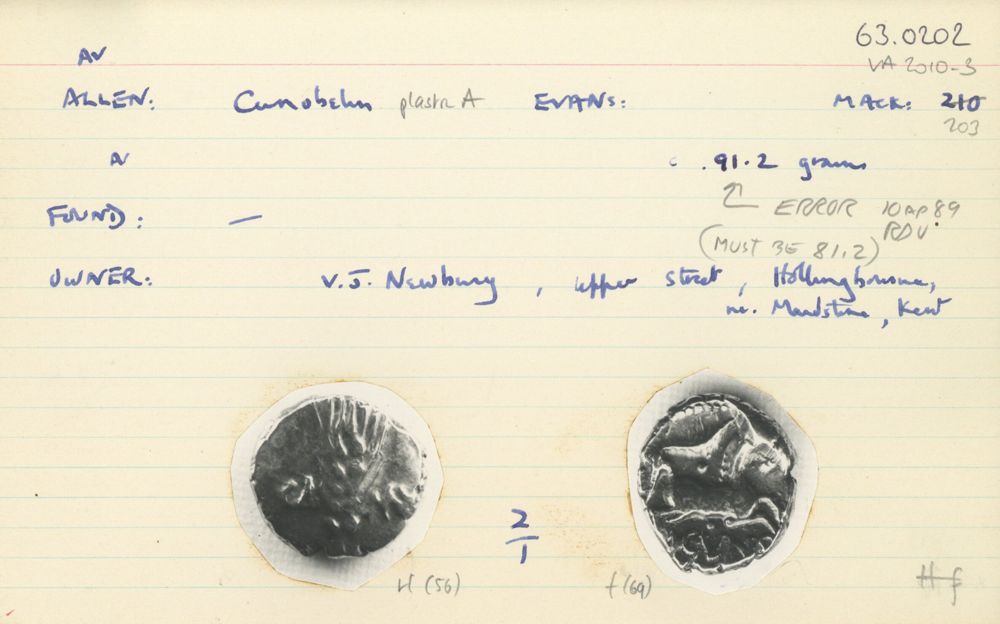 63.0202
AV
VA 2010-3
ALLEN: Cunobelin plastic A EVANS: MACK: 210
203
AV .91.2 grams
FOUND: — ERROR 10 AP 89
RDV.
(MUST BE 81.2)
OWNER: V.J. Newbury, upper street, Hollingbourne,
nr. Maidstone, Kent
2
1
H (56) f (69) H f
CUN